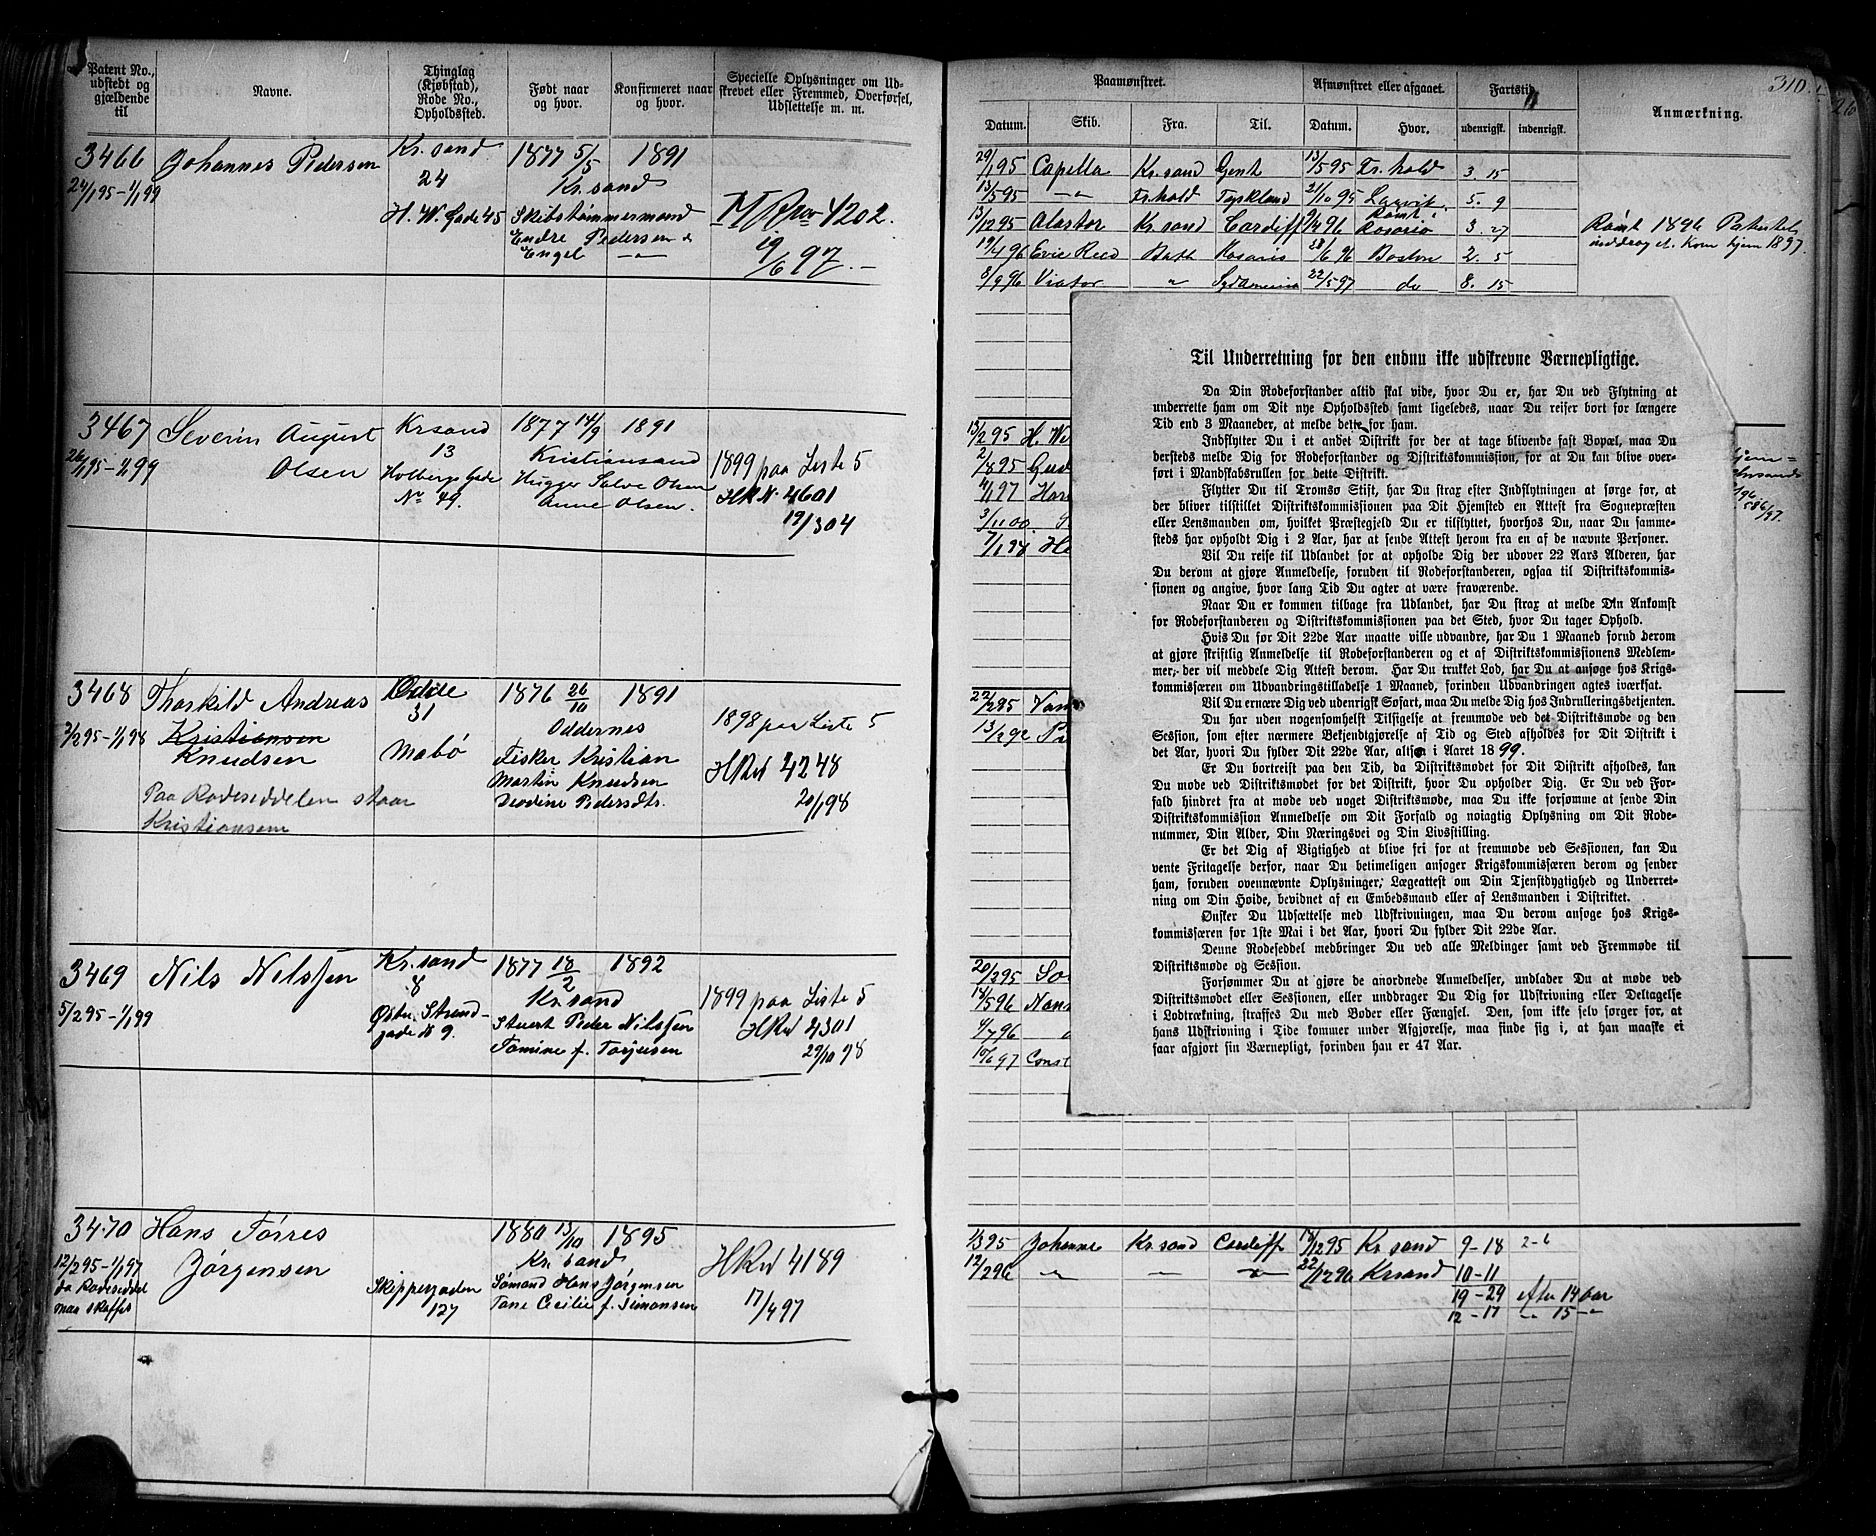 Patent No., udstedt og gjældende til
Navne.
Thinglag (Kjøbstad), Rode No., Opholdssted.
Født naar og hvor.
Konfirmeret naar og hvor.
Specielle Oplysninger om Udskrevet eller Fremmed, Overførsel, Udslettelse m. m.
3466 Johannes Pedersen Kr.sand 1877 5/5 1891
24/1 95-1/1 99 24 Kr.sand
H. W. Gade 45 Skibstømmermand
Endre Pedersen &
Engel —"—
4202.
19/6 97.—
3467 Severin August Krsand 1877 14/9 1891
26/1 95-1/1 99 Olsen 13 Kristiansand
Holbergs Gade Hugger Salve Olsen
No 49. Anne Olsen.
1899 paa Liste 5
HRN. 4601
19/3 04
3468 Thorkild Andreas Odde 1876 26/10 1891
2/2 95-1/1 98 Kristiansen 31 Oddernes
Knudsen Mobø Fisker Kristian
Martin Knudsen
Paa Rodeseddelen staar
Kristiansen
1898 paa Liste 5
HRN 4248
20/1 98
3469 Nils Nilssen Kr.sand 1877 18/2 1892
5/2 95-1/1 99 8 Kr.sand
Østre Strand- Stuert Peder Nilssen
gade N 9. Tomine f. Torjussen
1899 paa Liste 5
29/10 98
3470 Hans Tørres 1880 13/10 1895
12/2 95-1/1 97 Jørgensen Kr.sand
Skippergaden Sømand Hans Jørgensen
127 Tane Cecilie f. Simonsen
HRN 4189
17/4 97
310.
Paamønstret.
Afmønstret eller afgaaet.
Fartstid.
Anmærkning.
Datum. Skib. Fra. Til. Datum. Hvor. udenrigsk. indenrigsk.
29/1 95 Capella Kr.sand Gent 13/5 95 Fr.hald 3. 15
13/5 95 —"— Fr.hald Tyskland 21/10 95 Larvik 5. 9
13/12 95 Alastor Kr.sand Cardiff 9/4 96 Rømt i Rosario 3. 27
19/4 96 Evie Reed Bath Rosario 28/6 96 Boston 2. 5
8/9 96 Viator " 22/5 97 do 8. 15
Rømt 1896
inddraget. Kom hjem 1897.
13/2 95 H. We
2/8 95
4/1 97
3/11 00
22/2 95
13/2 92
20/3 95
14/5 96
4/7 96
10/6 97 Const
Til Underretning for den endnu ikke udskrevne Værnepligtige.
Da Din Rodeforstander altid skal vide, hvor Du er, har Du ved Flytning at
underrette ham om Dit nye Opholdssted samt ligeledes, naar Du reiser bort for længere
Tid end 3 Maaneder, at melde dette for ham.
Indflytter Du i et andet Distrikt for der at tage blivende fast Bopæl, maa Du
dersteds melde Dig for Rodeforstander og Distriktskommission, for at Du kan blive over-
ført i Mandskabsrullen for dette Distrikt.
Flytter Du til Tromsø Stift, har Du strax efter Indflytningen at sørge for, at
der bliver tilstillet Distriktskommissionen paa Dit Hjemsted en Attest fra Sognepræsten
eller Lensmanden om, hvilket Præstegjeld Du er tilflyttet, hvorhos Du, naar Du samme-
steds har opholdt Dig i 2 Aar, har at sende Attest herom fra en af de nævnte Personer.
Vil Du reise til Udlandet for at opholde Dig der udover 22 Aars Alderen, har
Du derom at gjøre Anmeldelse, foruden til Rodeforstanderen, ogsaa til Distriktskommis-
sionen og angive, hvor lang Tid Du agter at være fraværende.
Naar Du er kommen tilbage fra Udlandet, har Du strax at melde Din Ankomst
for Rodeforstanderen og Distriktskommissionen paa det Sted, hvor Du tager Ophold.
Hvis Du før Dit 22de Aar maatte ville udvandre, har Du 1 Maaned forud derom
at gjøre skriftlig Anmeldelse til Rodeforstanderen og et af Distriktskommissionens Medlem-
mer, der vil meddele Dig Attest derom. Har Du trukket Lod, har Du at ansøge hos Krigs-
kommissæren om Udvandringstilladelse 1 Maaned, forinden Udvandringen agtes iværksat.
Vil Du ernære Dig ved udenrigsk Søfart, maa Du melde Dig hos Indrulleringsbetjenten.
Du har uden nogensomhelst Tilsigelse at fremmøde ved det Distriktsmøde og den
Session, som efter nærmere Bekjendtgjørelse af Tid og Sted afholdes for Dit Distrikt i
det Aar, hvori Du fylder Dit 22de Aar, altsaa i Aaret 1899.
Er Du bortreist paa den Tid, da Distriktsmødet for Dit Distrikt afholdes, kan
Du møde ved Distriktsmødet for det Distrikt, hvor Du opholder Dig. Er Du ved For-
fald hindret fra at møde ved noget Distriktsmøde, maa Du ikke forsømme at sende Din
Distriktskommission Anmeldelse om Dit Forfald og nøiagtig Oplysning om Dit Rode-
nummer, Din Alder, Din Næringsvei og Din Livsstilling.
Er det Dig af Vigtighed at blive fri for at fremmøde ved Sessionen, kan Du
vente Fritagelse derfor, naar Du betimeligen ansøger Krigskommissæren derom og sender
ham, foruden ovennævnte Oplysninger, Lægeattest om Din Tjenstdygtighed og Underret-
ning om Din Høide, bevidnet af en Embedsmand eller af Lensmanden i Distriktet.
Ønsker Du Udsættelse med Udskrivningen, maa Du derom ansøge hos Krigs-
kommissæren før 1ste Mai i det Aar, hvori Du fylder Dit 22de Aar.
Denne Rodeseddel medbringer Du ved alle Meldinger samt ved Fremmøde til
Distriktsmøde og Session.
Forsømmer Du at gjøre de anordnede Anmeldelser, undlader Du at møde ved
Distriktsmødet eller Sessionen, eller unddrager Du Dig for Udskrivning eller Deltagelse
i Lodtrækning, straffes Du med Bøder eller Fængsel. Den, som ikke selv sørger for, at
hans Udskrivning i Tide kommer under Afgjørelse, maa finde sig i, at han maaske ei
faar afgjort sin Værnepligt, forinden han er 47 Aar.
1/3 95 Johanne Kr.sand Cardiff 18/12 95 Kr.sand 9-18 2-6
12/2 96 —"— —"— —"— 22/12 96 Krsand 10-11
19-29 efter 14 aar
12-17 —"— 15 —"—